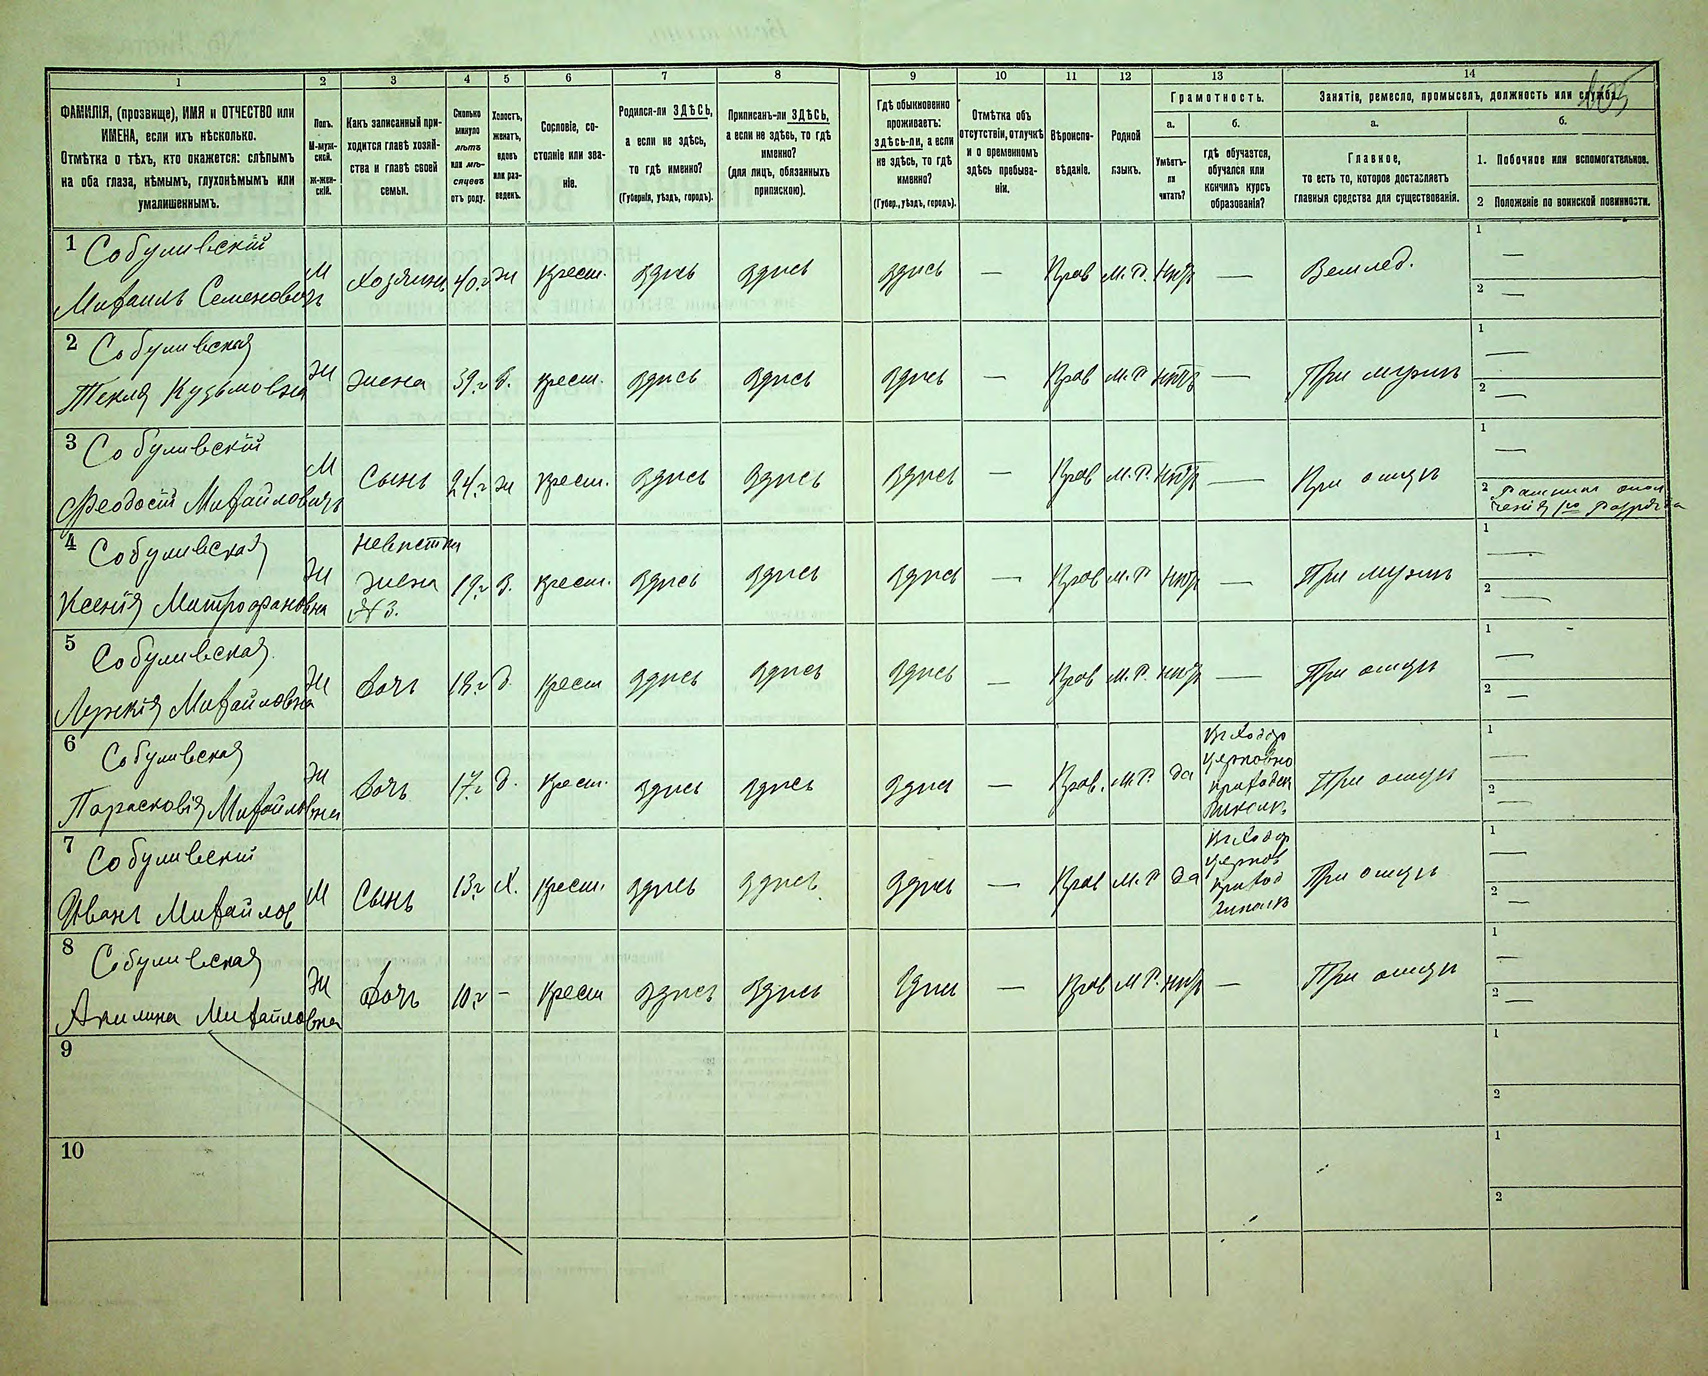 605
1 2 3 4 5 6 7 8 9 10 11 12 13 14
ФАМИЛІЯ, (прозвище), ИМЯ и ОТЧЕСТВО или
ИМЕНА, если ихъ нѣсколько.
Отмѣтка о тѣхъ, кто окажется: слѣпымъ
на оба глаза, нѣмымъ, глухонѣмымъ или
умалишеннымъ.
Полъ.
М-муж-
ской.
Ж-жен-
скій.
Какъ записанный при-
ходится главѣ хозяй-
ства и главѣ своей
семьи.
Сколько
минуло
лѣтъ
или мѣ-
сяцевъ
отъ роду.
Холостъ,
женатъ,
вдовъ
или раз-
веденъ.
Сословіе, со-
стояніе или зва-
ніе.
Родился-ли ЗДѢСЬ,
а если не здѣсь,
то гдѣ именно?
(Губернія, уѣздъ, городъ).
Приписанъ-ли ЗДѢСЬ,
а если не здѣсь, то гдѣ
именно?
(для лицъ, обязанныхъ
припискою).
Гдѣ обыкновенно
проживаетъ:
здѣсь-ли, а если
не здѣсь, то гдѣ
именно?
(Губер., уѣздъ, городъ).
Отмѣтка объ
отсутствіи, отлучкѣ
и о временномъ
здѣсь пребыва-
ніи.
Вѣроиспо-
вѣданіе.
Родной
языкъ.
Грамотность.
а.
Умѣетъ-
ли
читать?
б.
гдѣ обучается,
обучался или
кончилъ курсъ
образованія?
Занятіе, ремесло, промыселъ, должность или служба.
а.
Главное,
то есть то, которое доставляетъ
главныя средства для существованія.
б.
1. Побочное или вспомогательное.
2 Положеніе по воинской повинности.
1 Собуливскій
Михаилъ Семеновичъ М Хозяинъ 40.г ж Крест. здѣсь здѣсь здѣсь — Прав М.Р. нѣтъ — Землед. 1 — 2 —
2 Собуливская
Текля Кузьмовна Ж жена 39.г З. Крест. здѣсь здѣсь здѣсь — Прав М.Р. нѣтъ — При мужѣ 1 — 2 —
3 Собуливскій
Феодосій Михайловичъ М Сынъ 24.г ж Крест. здѣсь здѣсь здѣсь — Прав М.Р. нѣтъ — При отцѣ 1 —
2 Ратникъ опол
ченія 1го разряда
4 Собуливская
Ксенія Митрофановна Ж невѣстка
жена
№3. 19.г З. Крест. здѣсь здѣсь здѣсь — Прав М.Р. нѣтъ — При мужѣ 1 — 2 —
5 Собуливская
Лукія Михайловна Ж дочь 18.г д. Крест здѣсь здѣсь здѣсь — Прав М.Р. нѣтъ — При отцѣ 1 — 2 —
6 Собуливская
Парасковія Михайловна Ж дочь 17.г д. Крест. здѣсь здѣсь здѣсь — Прав. М.Р. да
церковно
приходск
При отцѣ 1 — 2 —
7 Собуливскій
Иванъ Михайлов М Сынъ 13.г Х. Крест. здѣсь здѣсь здѣсь — Прав М.Р да
церков
приход
При отцѣ 1 — 2 —
8 Собуливская
Акилина Михайловна Ж дочь 10.г — Крест здѣсь здѣсь здѣсь — Прав М.Р. нѣтъ — При отцѣ 1 — 2 —
9 1 2
10 1 2